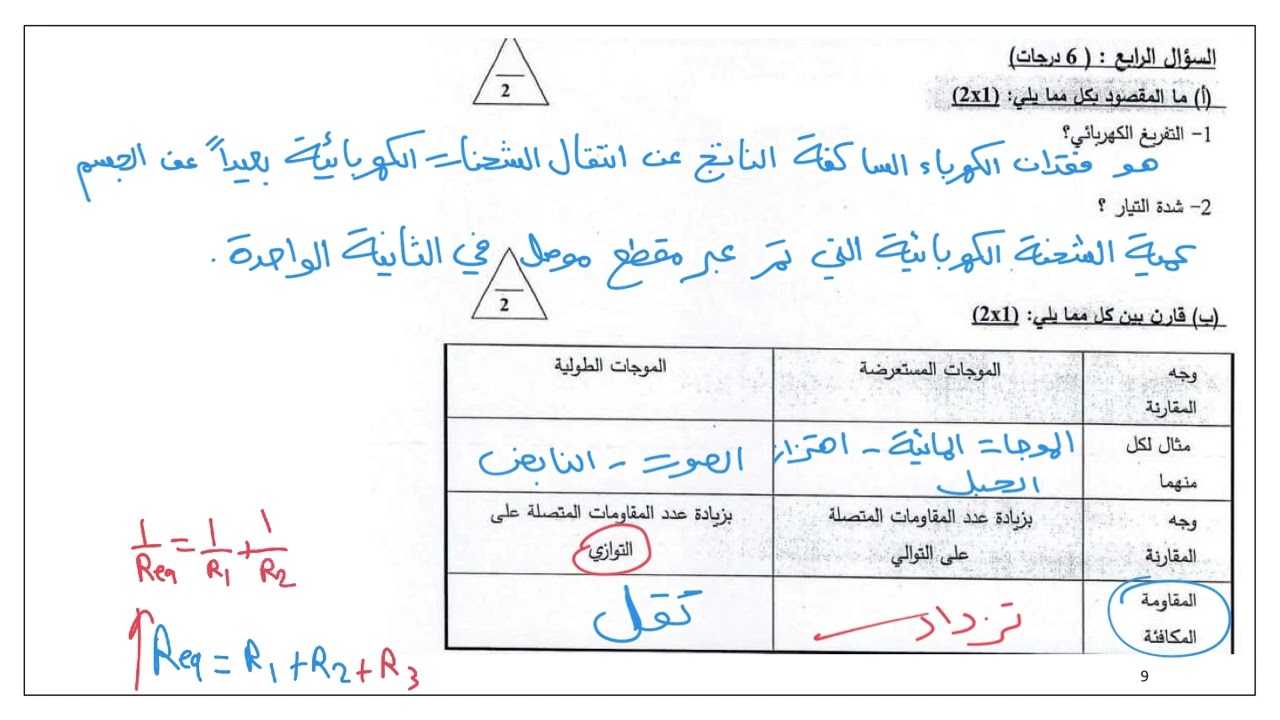 السؤال الرابع : ( 6 درجات)
2
(أ) ما المقصود بكل مما يلي: (2x1)
1- التفريغ الكهربائي؟
هو فقدان الكهرباء الساكنة الناتج عن انتقال الشحنات الكهربائية بعيداً عن الجسم
2- شدة التيار ؟
كمية الشحنة الكهربائية التي تمر عبر مقطع موصل في الثانية الواحدة .
2
(ب) قارن بين كل مما يلي: (2x1)
وجه المقارنة
الموجات المستعرضة
الموجات الطولية
مثال لكل منهما
الموجات المائية - اهتزاز الحبل
الصوت - النابض
وجه المقارنة
بزيادة عدد المقاومات المتصلة على التوالي
بزيادة عدد المقاومات المتصلة على التوازي
المقاومة المكافئة
تزداد
تقل
1/Req = 1/R1 + 1/R2
Req = R1 + R2 + R3
9